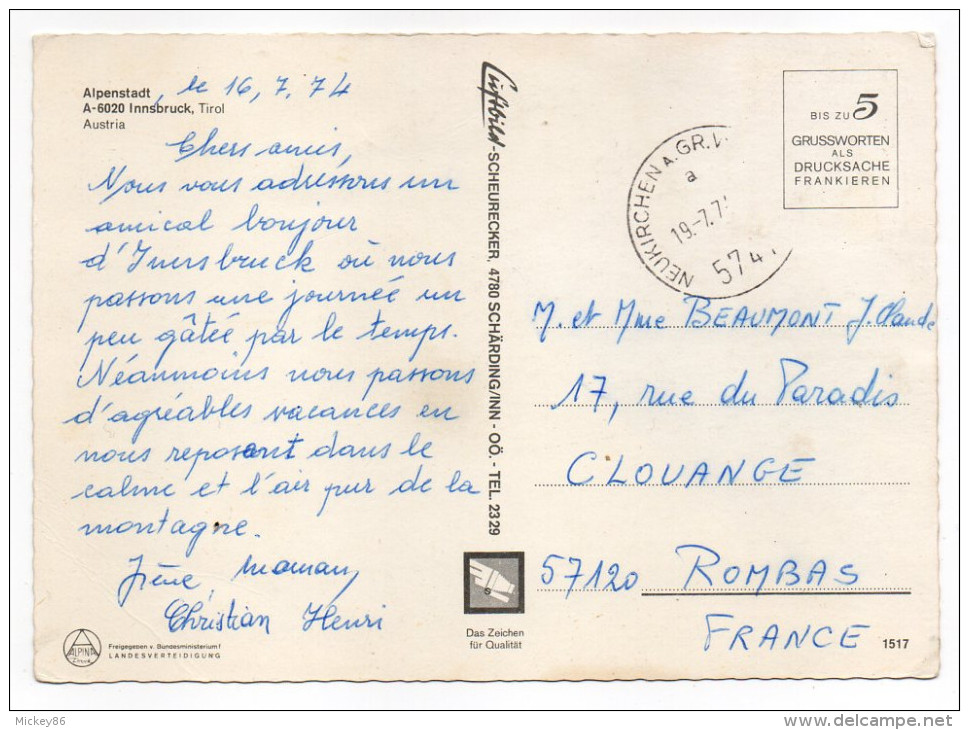 Alpenstadt
A-6020 Innsbruck, Tirol
Austria
, le 16, 7. 74
Chers amis,
Nous vous adressons un
amical bonjour
d'Innsbruck où nous
passons une journée un
peu gâtée par le temps.
Néanmoins nous passons
d'agréables vacances en
nous reposant dans le
calme et l'air pur de la
montagne.
Irène Maman
Christian Henri
ALPINA
Freigegeben v. Bundesministerium f
LANDESVERTEIDIGUNG
Luftbild-SCHEURECKER, 4780 SCHÄRDING/INN - OÖ. - TEL. 2329
Das Zeichen
für Qualität
NEUKIRCHEN A. GR. V.
a
19.-7.7
574
BIS ZU 5
GRUSSWORTEN
ALS
DRUCKSACHE
FRANKIEREN
M. et Mme BEAUMONT J. Claude
17, rue du Paradis
CLOUANGE
57120 ROMBAS
FRANCE
1517
Mickey86
www.delcampe.net